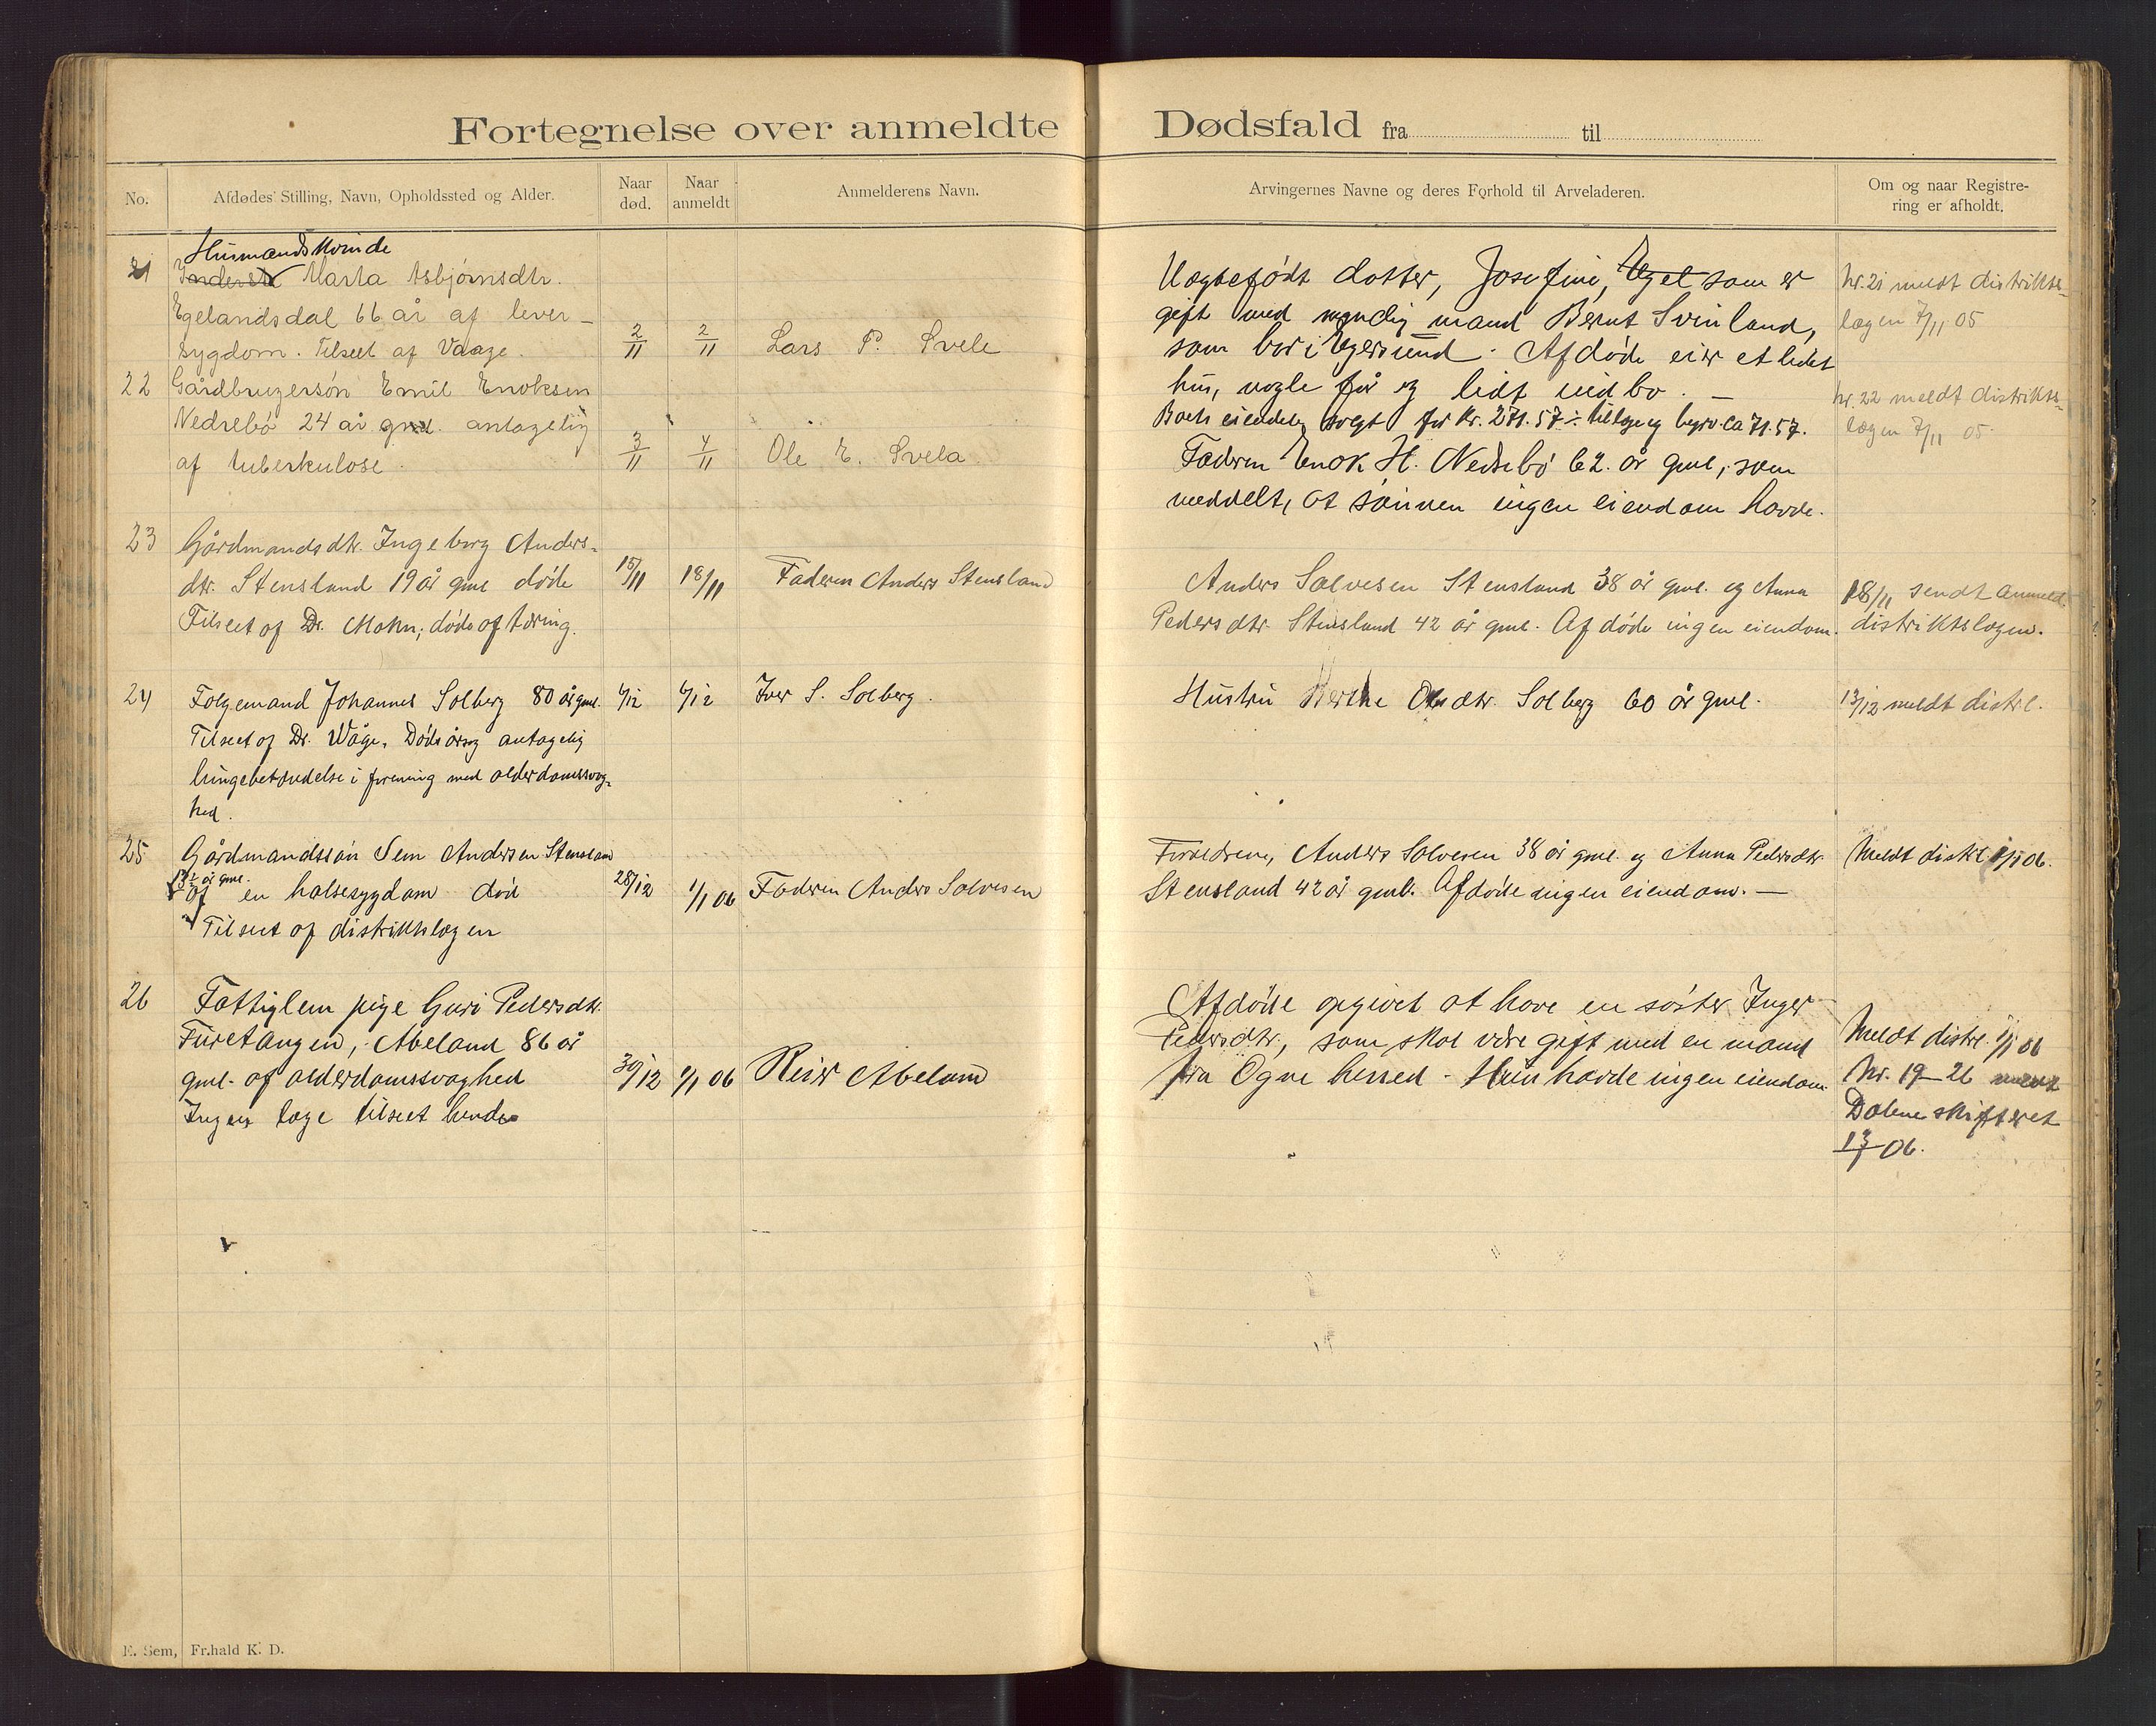 Fortegnelse over anmeldte Dødsfald fra til
No.
Afdødes Stilling, Navn, Opholdssted og Alder.
Naar død.
Naar anmeldt
Anmelderens Navn.
Arvingernes Navne og deres Forhold til Arveladeren.
Om og naar Registrering er afholdt.
21
Husmandskvinde
Inderst Marta Asbjørnsdtr.
Egelandsdal 66 år af lever-
sygdom. Tilseet af Vaage.
2/11
2/11
Lars P. Svele
Uægtefødt datter, Josefine, Egel som er
gift med myndig mand Bernt Svinland,
som bor i Egersund. Afdøde eier et lidet
hus, nogle får og lidt indbo. —
Boets eiendele solgt for kr. 271.57
nr. 21 meldt distrikts-
lægen 7/11 05
22
Gårdbrugersøn Emil Enoksen
Nedrebø 24 år gml. antagelig
af tuberkulose.
3/11
4/11
Ole E. Svela
Faderen Enok H. Nedrebø 62 år gml, som
meddelt, at sønnen ingen eiendom havde.
nr. 22 meldt distrikts-
lægen 7/11 05
23
Gårdmandsdtr. Ingeborg Anders-
dtr. Stensland 19 år gml døde
Tilseet af Dr. Mohn; døde af tæring.
15/11
18/11
Faderen Anders Stensland
Anders Salvesen Stensland 38 år gml. og Anna
Pedersdtr. Stensland 42 år gml. Afdøde ingen eiendom.
18/11 sendt anmeld.
distriktslægen.
24
Folgemand Johannes Solberg 80 år gml.
Tilseet af Dr. Våge. Dødsårsag antagelig
lungebetændelse i forening med alderdomssvag-
hed.
6/12
6/12
Iver S. Solberg.
Hustru Berthe Olsdtr. Solberg 60 år gml.
13/12 meldt distrl.
25
Gårdmandssøn Sem Andersen Stensland
år gml.
af en halssygdom død
Tilseet af distriktslægen
28/12
1/1 06
Faderen Anders Salvesen
Forældrene, Anders Salvesen 38 år gml. og Anna Pedersdtr.
Stensland 42 år gml. Afdøde ingen eiendom. —
Meldt distrl. 1/1 06.
26
Fattiglem pige Guri Pedersdtr.
Furetangen, Abeland 86 år
gml. af alderdomssvaghed
Ingen læge tilseet hende
30/12
1/1 06
Reier Abeland
Afdøde opgivet at have en søster Inger
Pedersdtr., som skal være gift med en mand
fra Ogne herred. Hun havde ingen eiendom.
Meldt distrl. 1/1 06
Nr. 19-26 meldt
Dalene skifteret
13/1 06.
E. Sem, Fr.hald K. D.